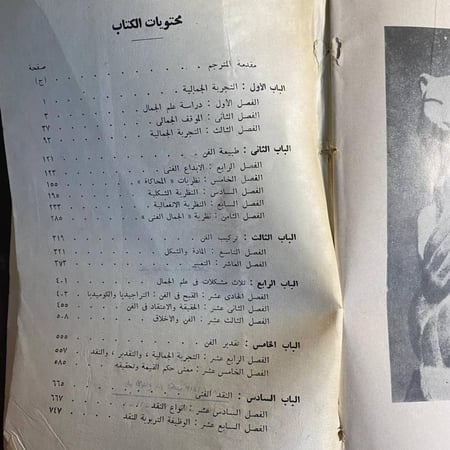 محتويات الكتاب
صفحة
مقدمة المترجم . . . . . . . . (ج)
الباب الأول : التجربة الجمالية . . . . . . ١
الفصل الأول : دراسة علم الجمال . . . . . ٣
الفصل الثانى : الموقف الجمالى . . . . . ٣٧
الفصل الثالث : التجربة الجمالية . . . . . ٩٣
الباب الثانى : طبيعة الفن . . . . . . ١٢١
الفصل الرابع : الابداع الفنى . . . . . ١٢٣
الفصل الخامس : نظريات « المحاكاة » . . . . ١٥٥
الفصل السادس : النظرية الشكلية . . . . ١٩٥
الفصل السابع : النظرية الانفعالية . . . . ٢٣٣
الفصل الثامن : نظرية « الجمال الفنى » . . . . ٢٨٥
الباب الثالث : تركيب الفن . . . . . . ٣١٩
الفصل التاسع : المادة والشكل . . . . . ٣٢١
الفصل العاشر : التعبير . . . . . . ٣٧٣
الباب الرابع : ثلاث مشكلات في علم الجمال . . . . ٤٠١
الفصل الحادى عشر : القبح في الفن : التراجيديا والكوميديا . ٤٠٣
الفصل الثانى عشر : الحقيقة والاعتقاد في الفن . . . ٤٥٥
الفصل الثالث عشر : الفن والأخلاق . . . . ٥٠٨
الباب الخامس : تقدير الفن . . . . . . ٥٥٥
الفصل الرابع عشر : التجربة الجمالية ، والتقدير ، والنقد . ٥٥٧
الفصل الخامس عشر : معنى حكم القيمة وتحقيقه . . . ٥٨٥
الباب السادس : النقد الفنى . . . . . . ٦٦٥
الفصل السادس عشر : أنواع النقد . . . . ٦٦٧
الفصل السابع عشر : الوظيفة التربوية للنقد . . . ٧٤٧